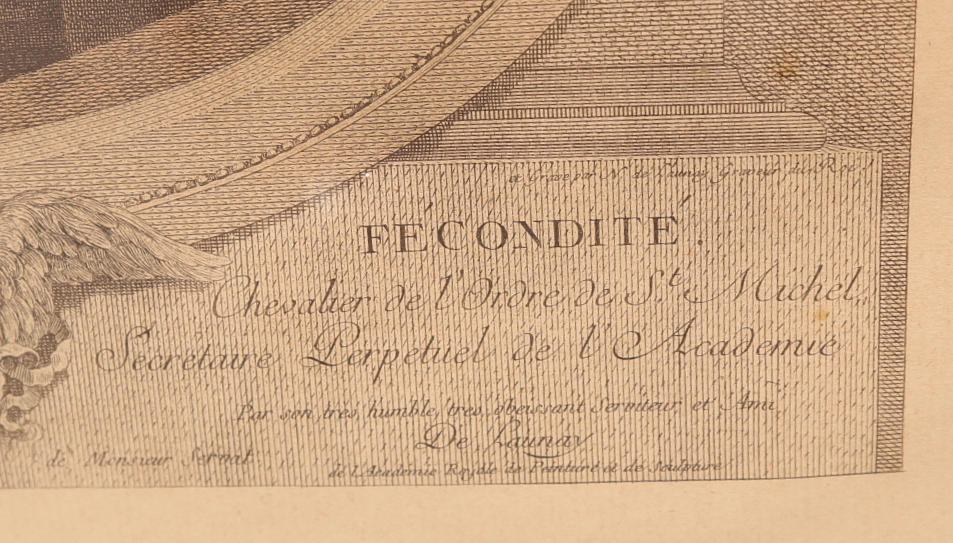 Gravé par N. de Launay Graveur du Roi.
FÉCONDITÉ.
Chevalier de l'Ordre de St. Michel,
Sécrétaire Perpetuel de l'Académie
Par son très humble, très obeissant Serviteur et Ami
De Launay
de Monsieur Sernat.
de L'Academie Royale de Peinture et de Sculpture